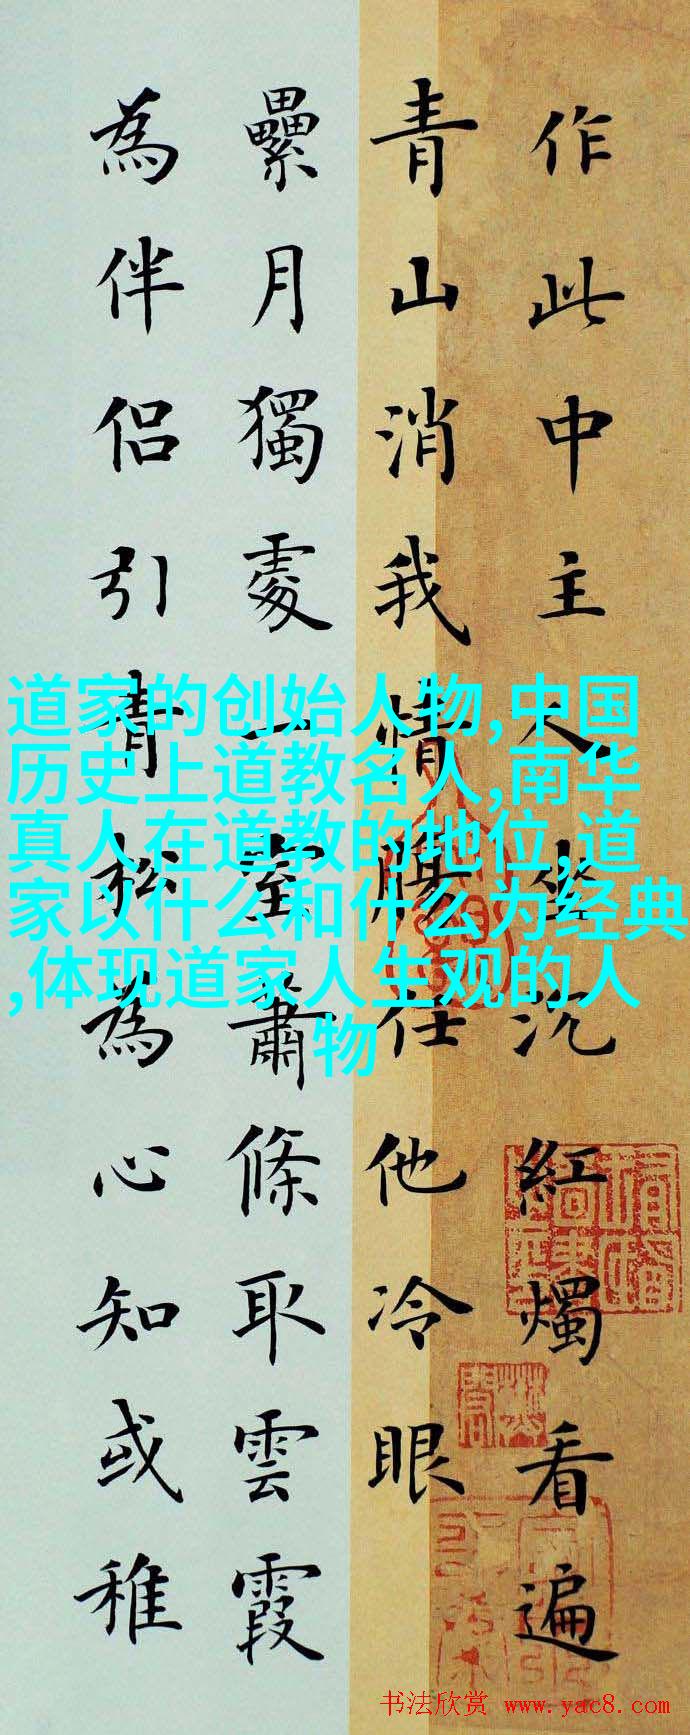 作此中主人坐沉紅燭看遍
青山消我情腸任他冷眼
纍月獨處一室蕭條取雲霞
為伴侶引青松為心知或稚
道家的创始人物,中国
历史上道教名人,南华
真人在道教的地位,道
家以什么和什么为经典
,体现道家人生观的人
物
书法欣赏 www.yac8.com